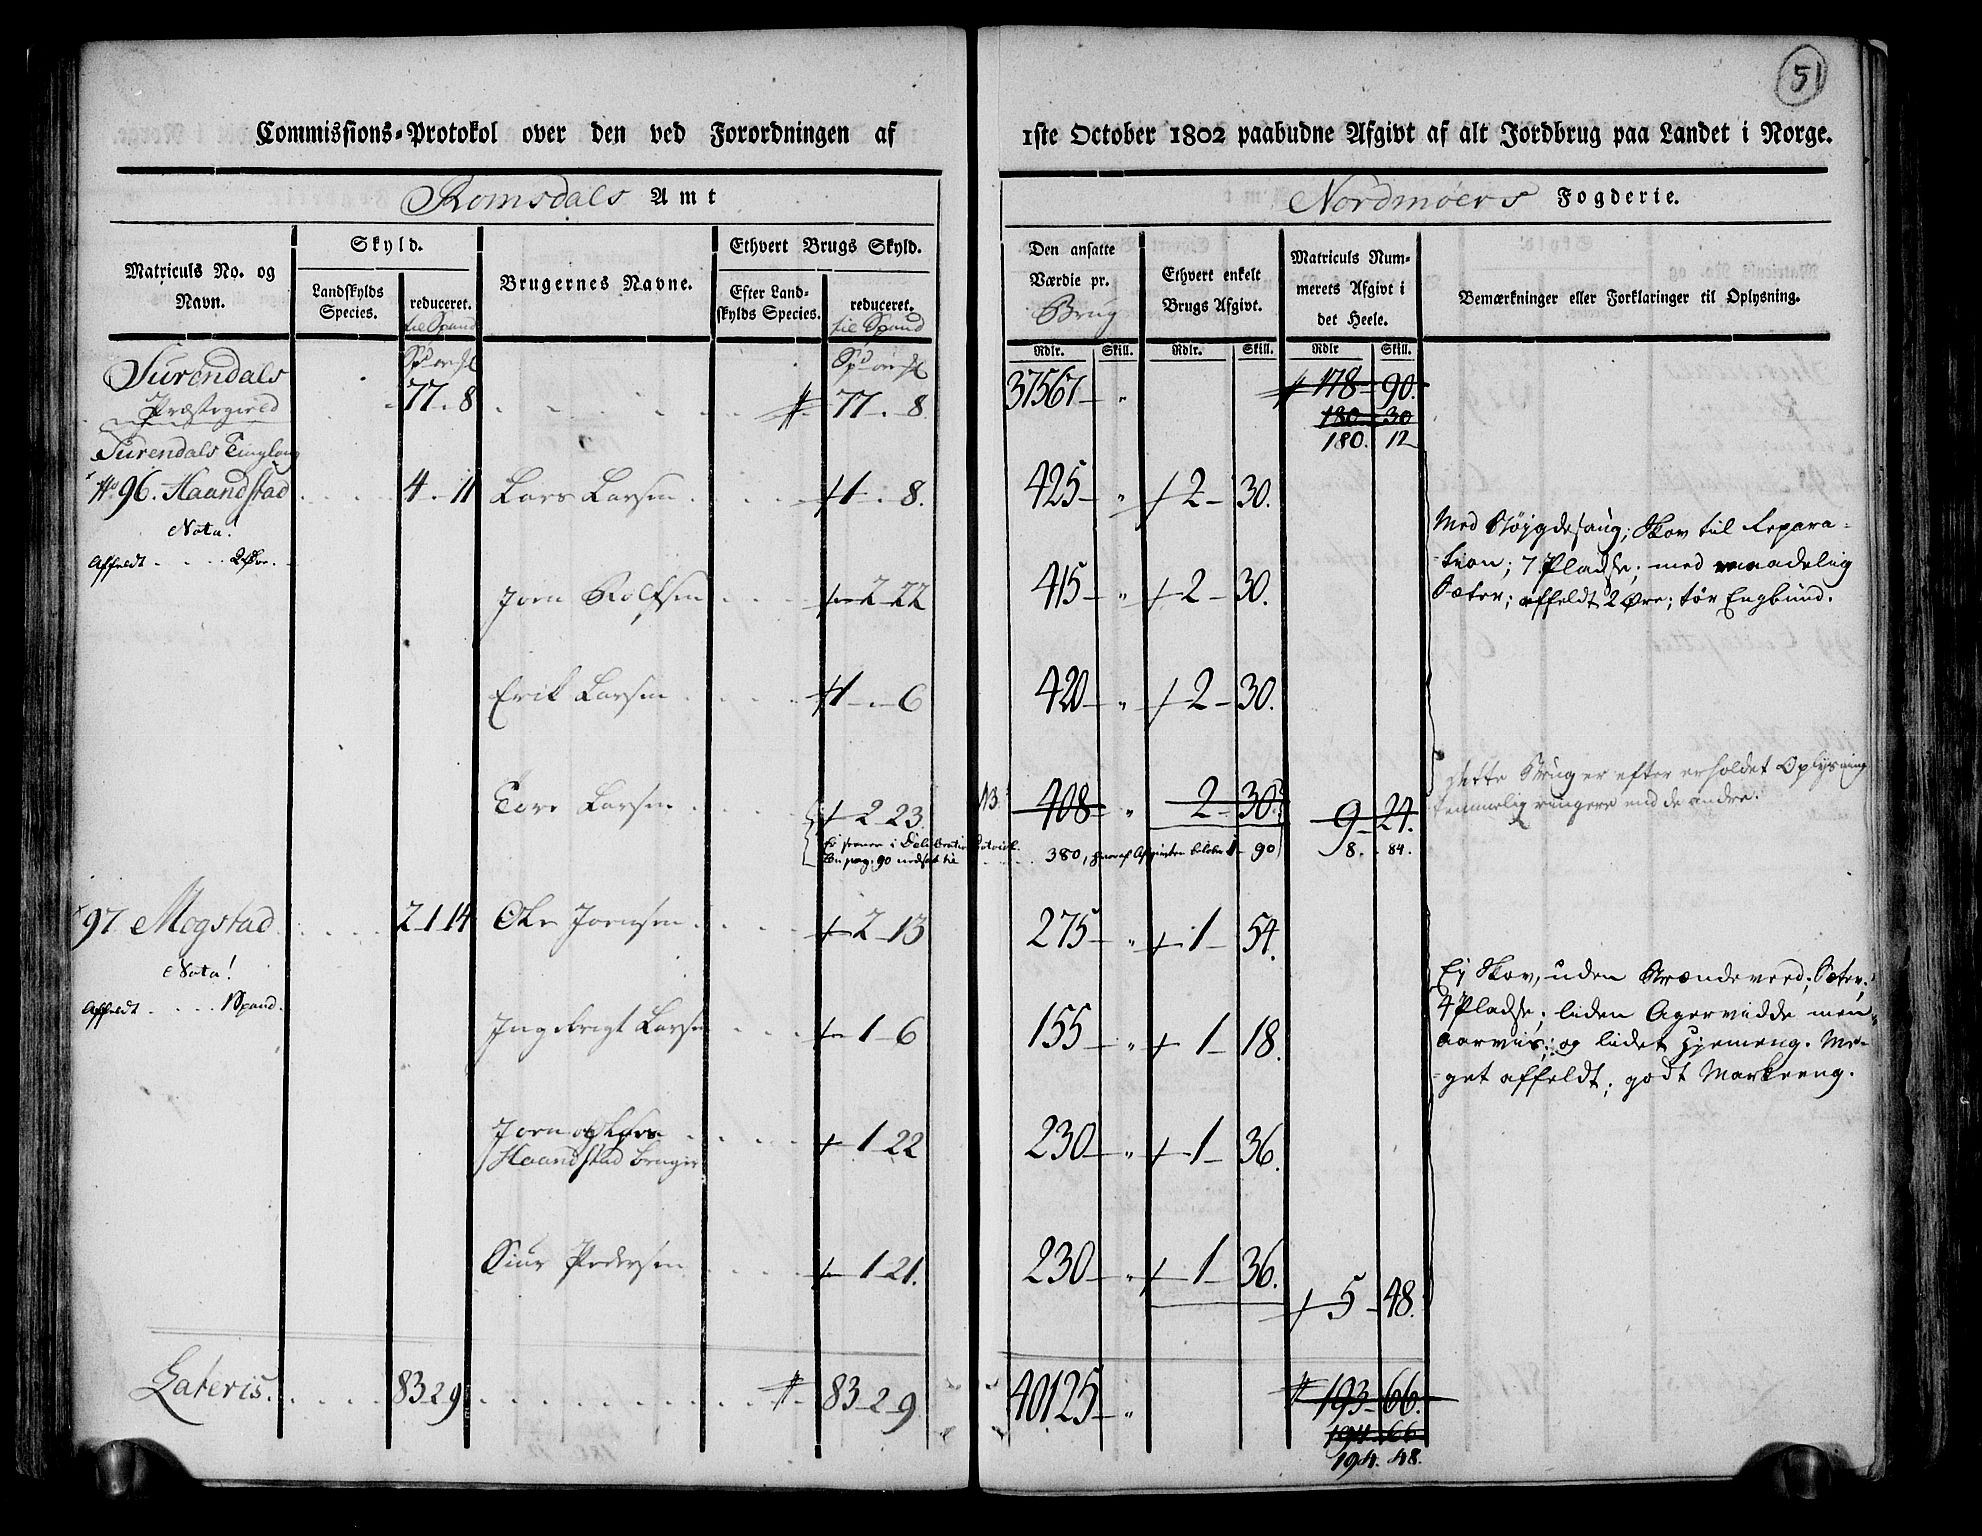 51
Commissions-Protokol over den ved Forordningen af 1ste October 1802 paabudne Afgivt af alt Jordbrug paa Landet i Norge.
Romsdals Amt
Nordmøers Fogderie.
Matriculs No. og Navn.
Skyld.
Landskylds Species.
reduceret. til Spand
Brugernes Navne.
Ethvert Brugs Skyld.
Efter Landskylds Species.
reduceret. til Spand
Den ansatte Værdie pr. Brug
Ethvert enkelt Brugs Afgivt.
Matriculs Nummerets Afgivt i det Heele.
Bemærkninger eller Forklaringer til Oplysning.
Rdlr. Skill. Rdlr. Skill. Rdlr Skill.
Surendals
Præstegield 77 - 8 77 - 8. 37567 - " 178 - 90.
180 - 30
180. 12
Surendals Tinglaug
No 96. Haandstad 4 - 11 Lars Larsen 1 - 8. 425 - " 2 - 30.
Nota!
Affeldt 2 Øre.
Med Høyqdesaug; Skov til Repara-
tion; 7 Pladse; med maadelig
Sæter; affeldt 2 Øre; tør Engbund.
Jorn Rolfsen 2 22 415 - " 2 - 30.
Erik Larsen 1 - 6 420 - " 2 - 30.
Tore Larsen 2 23. 408 - " 2 - 30. 9 - 24.
dette Brug er efter erholdet Oplysning
temmelig ringere end de andre.
pag. 90 nedsat til 380, hvoraf Afgivten beløber 1 - 90 8. 84.
97 Mogstad 2 1 14 Ole Jornsen 2 - 13 275 - " 1 - 54.
Nota!
Affeldt 1 Spand.
Ej Skov, uden Brændeved; Sæter;
4 Pladse; liden Agervidde men
aarvis; og lidet Hjemeng. Me-
get affeldt; godt Markeeng.
Ingebrigt Larsen 1 - 6 155 - " 1 - 18.
Jorn og Lars
Haandstad bruger 1 22 230 - " 1 - 36.
Siur Pedersen 1 21. 230 - " 1 - 36.
5 - 48.
Lateris. 83 2 9 83 - 2 - 9 40125 - " 193 - 66.
194. 66
194. 48.